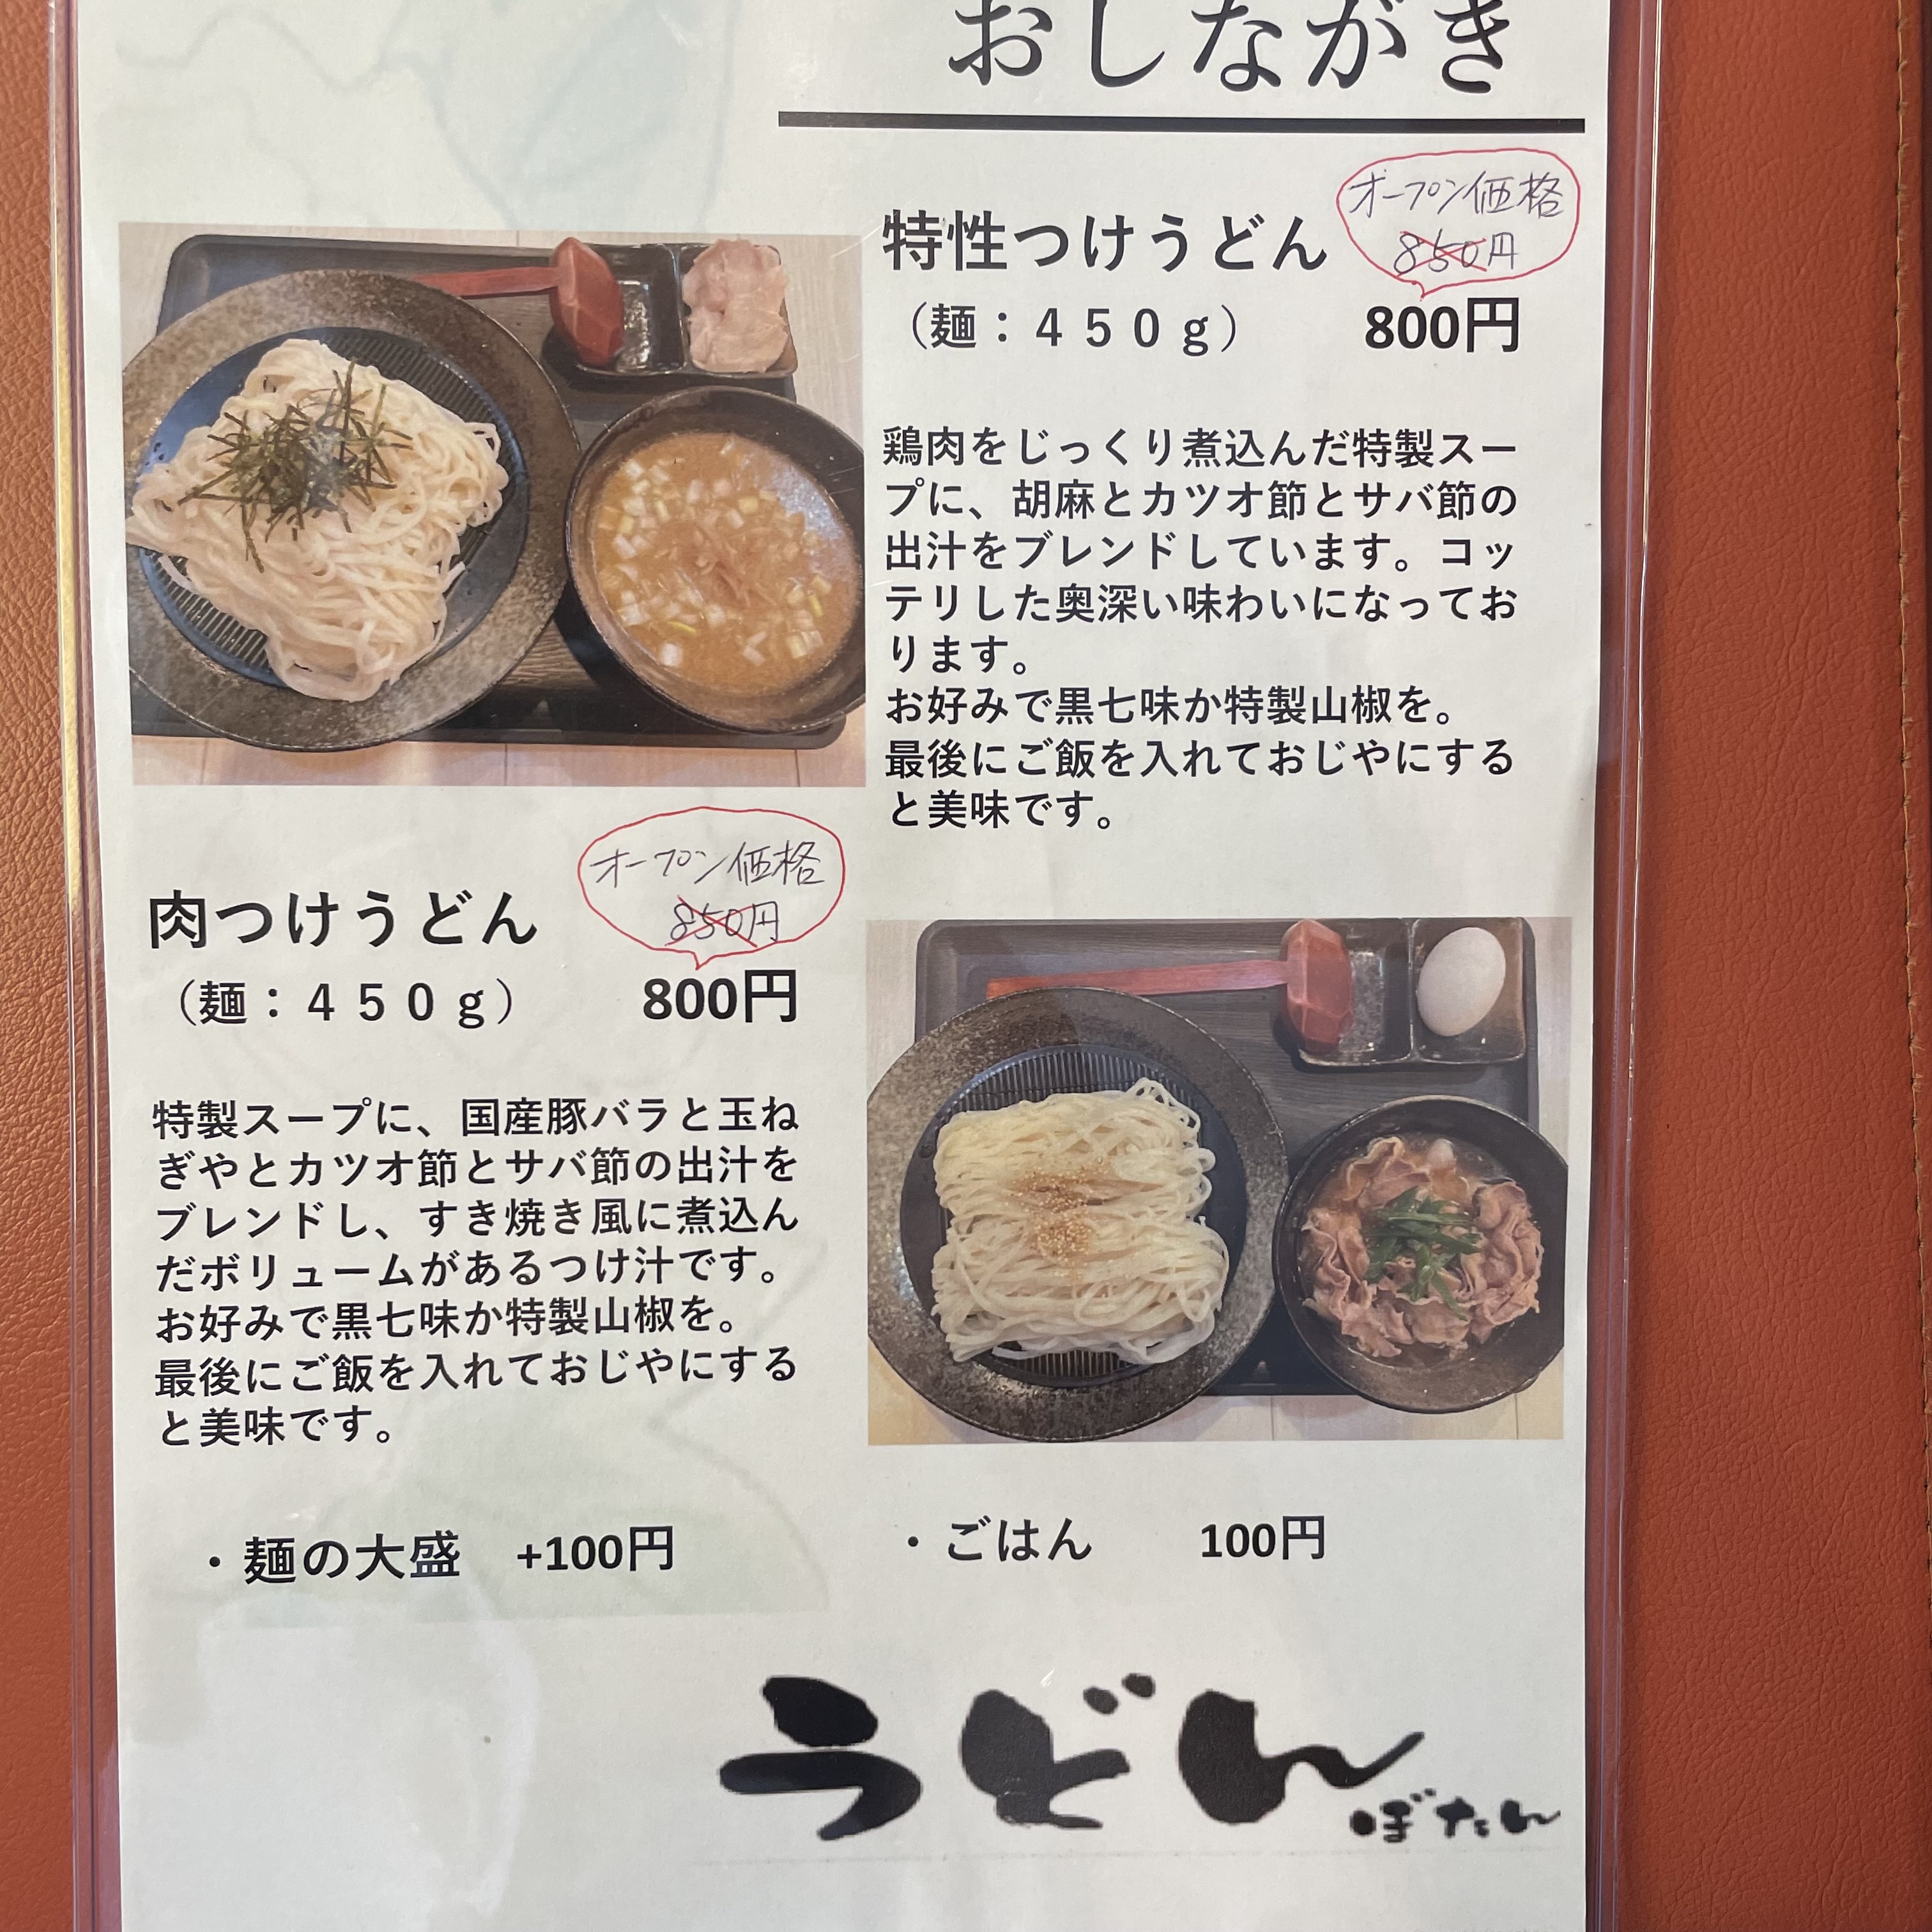 おしながき
特性つけうどん
オープン価格
850円
（麺：４５０ｇ） 800円
鶏肉をじっくり煮込んだ特製スー
プに、胡麻とカツオ節とサバ節の
出汁をブレンドしています。コッ
テリした奥深い味わいになってお
ります。
お好みで黒七味か特製山椒を。
最後にご飯を入れておじやにする
と美味です。
肉つけうどん
オープン価格
850円
（麺：４５０ｇ） 800円
特製スープに、国産豚バラと玉ね
ぎやとカツオ節とサバ節の出汁を
ブレンドし、すき焼き風に煮込ん
だボリュームがあるつけ汁です。
お好みで黒七味か特製山椒を。
最後にご飯を入れておじやにする
と美味です。
・麺の大盛 +100円
・ごはん 100円
うどん
ぼたん